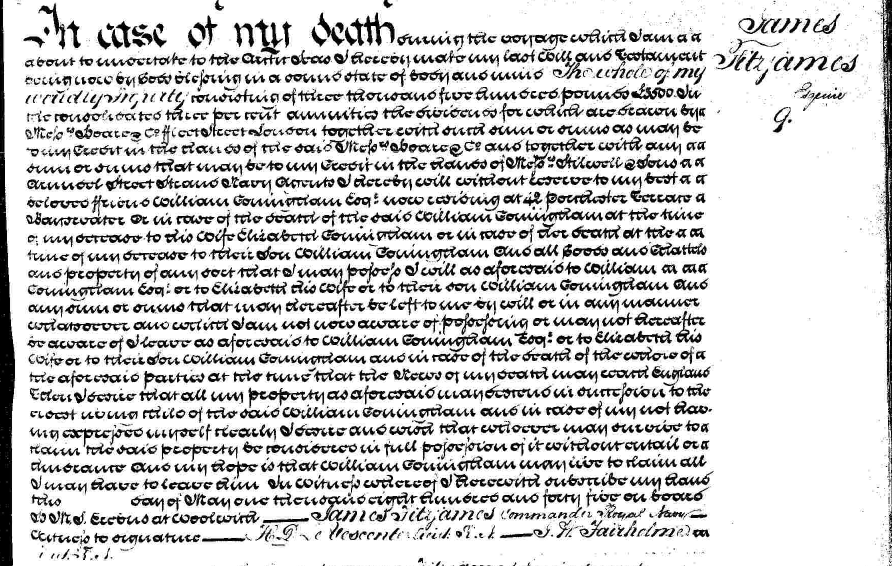 In case of my death during the voyage which I am a a
about to undertake to the Arctic Seas I hereby make my last Will and Testament
being now by Gods blessing in a sound state of body and mind The whole of my
worldly dignity consisting of three thousand five hundred pounds £3500. In
the consolidated three per cent annuities the dividends for which are drawn by a
Messrs. Hoare & Co Fleet Street London together with such sum or sums as may be
to my Credit in the hands of the said Messrs. Hoare & Co and together with any a a
sum or sums that may be to my Credit in the hands of Messrs. Stilwell & Sons a a
Arundel Street Strand Navy Agents I hereby will without reserve to my best a a
beloved friend William Coningham Esqr. now residing at 42 Porchester Terrace a
Bayswater Or in case of the death of the said William Coningham at the time
of my decease to his Wife Elizabeth Coningham or in case of her death at the a a
time of my decease to their Son William Coningham And all Goods and Chattels
and property of any sort that I may possess I will as aforesaid to William a a a
Coningham Esqr. or to Elizabeth his Wife or to their son William Coningham And
any sum or sums that may hereafter be left to me by will or in any manner
whatsoever and which I am not now aware of possessing or may not hereafter
be aware of I leave as aforesaid to William Coningham Esqr. or to Elizabeth his
Wife or to their Son William Coningham and in case of the death of the whole of a
the aforesaid parties at the time that the News of my death may reach England
Then I desire that all my property as aforesaid may descend in succession to the
eldest living child of the said William Coningham and in case of my not hav-
ing expressed myself clearly I desire and wish that whoever may survive to a
claim the said property be considered in full possession of it without entail or a
hindrance And my hope is that William Coningham may live to claim all
I may have to leave him In Witness whereof I herewith subscribe my hand
this day of May one thousand eight hundred and forty five on board
H.M.S. Erebus at Woolwich James Fitzjames Commander Royal Navy
Witness to signature H. D. Le Vesconte Lieut. R.N. J. W. Fairholme
Lieut. R.N.
James
Fitzjames
Esquire
9.